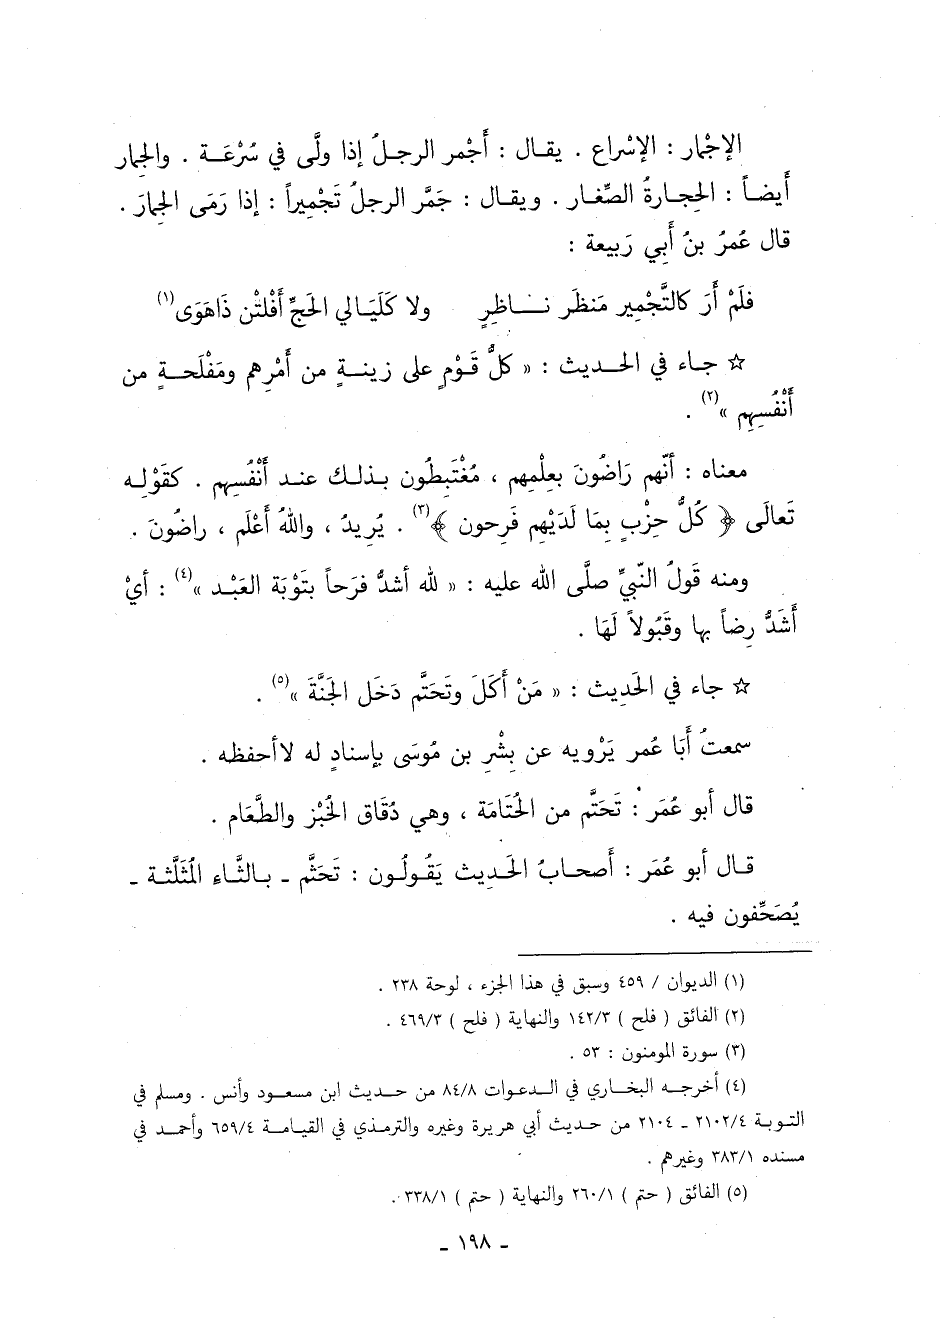 الإجْمار : الإسْراع . يقال : أَجْمر الرجلُ إذا ولَّى في سُرْعَة . والجِمار
أَيضاً : الحِجارةُ الصِّغار . ويقال : جَمَّر الرجلُ تَجْميراً : إذا رَمَى الجِمارَ .
قال عُمرُ بنُ أَبي رَبيعة :
فلَمْ أَرَ كالتَّجْميرِ مَنظَر ناظِرٍ ولا كَلَيَالي الحَجِّ أَفْلتْن ذَاهَوَى(١)
☆ جاء في الحديث : « كلُّ قَوْمٍ على زينةٍ من أَمْرِهم ومَفْلَحةٍ من
أَنْفُسِهِم »(٢) .
معناه : أنّهم رَاضُونَ بعِلْمِهم ، مُغْتَبِطُون بذلك عند أَنْفُسِهم . كقَوْلِه
تَعالَى ﴿ كُلُّ حِزْبٍ بِمَا لَدَيْهِم فَرِحون ﴾(٣) . يُرِيدُ ، واللهُ أَعْلَم ، راضُونَ .
ومنه قَولُ النَّبيِّ صلَّى الله عليه : « لله أشدُّ فرَحاً بتَوْبَة العَبْد »(٤) : أيْ
أَشَدُّ رِضاً بها وقَبُولاً لَهَا .
☆ جاء في الحَدِيث : « مَنْ أَكَلَ وتَحَتَّم دَخَل الجَنَّةَ »(٥) .
سمعتُ أَبَا عُمر يَرْويه عن بِشْرِ بن مُوسَى بإسنادٍ له لاأحفظه .
قال أبو عُمَر : تَحَتَّم من الحُتَامَة ، وهي دُقَاق الخُبْز والطَّعَام .
قال أبو عُمَر : أَصحابُ الحَدِيث يَقُولُون : تَحَثَّم ـ بالثَّاء المُثَلَّثة ـ
يُصَحِّفون فيه .
(١) الديوان / ٤٥٩ وسبق في هذا الجزء ، لوحة ٢٣٨ .
(٢) الفائق ( فلح ) ١٤٢/٣ والنهاية ( فلح ) ٤٦٩/٣ .
(٣) سورة المومنون : ٥٣ .
(٤) أخرجه البخاري في الدعوات ٨٤/٨ من حديث ابن مسعود وأنس . ومسلم في
التوبة ٢١٠٢/٤ ـ ٢١٠٤ من حديث أبي هريرة وغيره والترمذي في القيامة ٦٥٩/٤ وأحمد في
مسنده ٣٨٣/١ وغيرهم .
(٥) الفائق ( حتم ) ٢٦٠/١ والنهاية ( حتم ) ٣٣٨/١ .
ـ ١٩٨ ـ